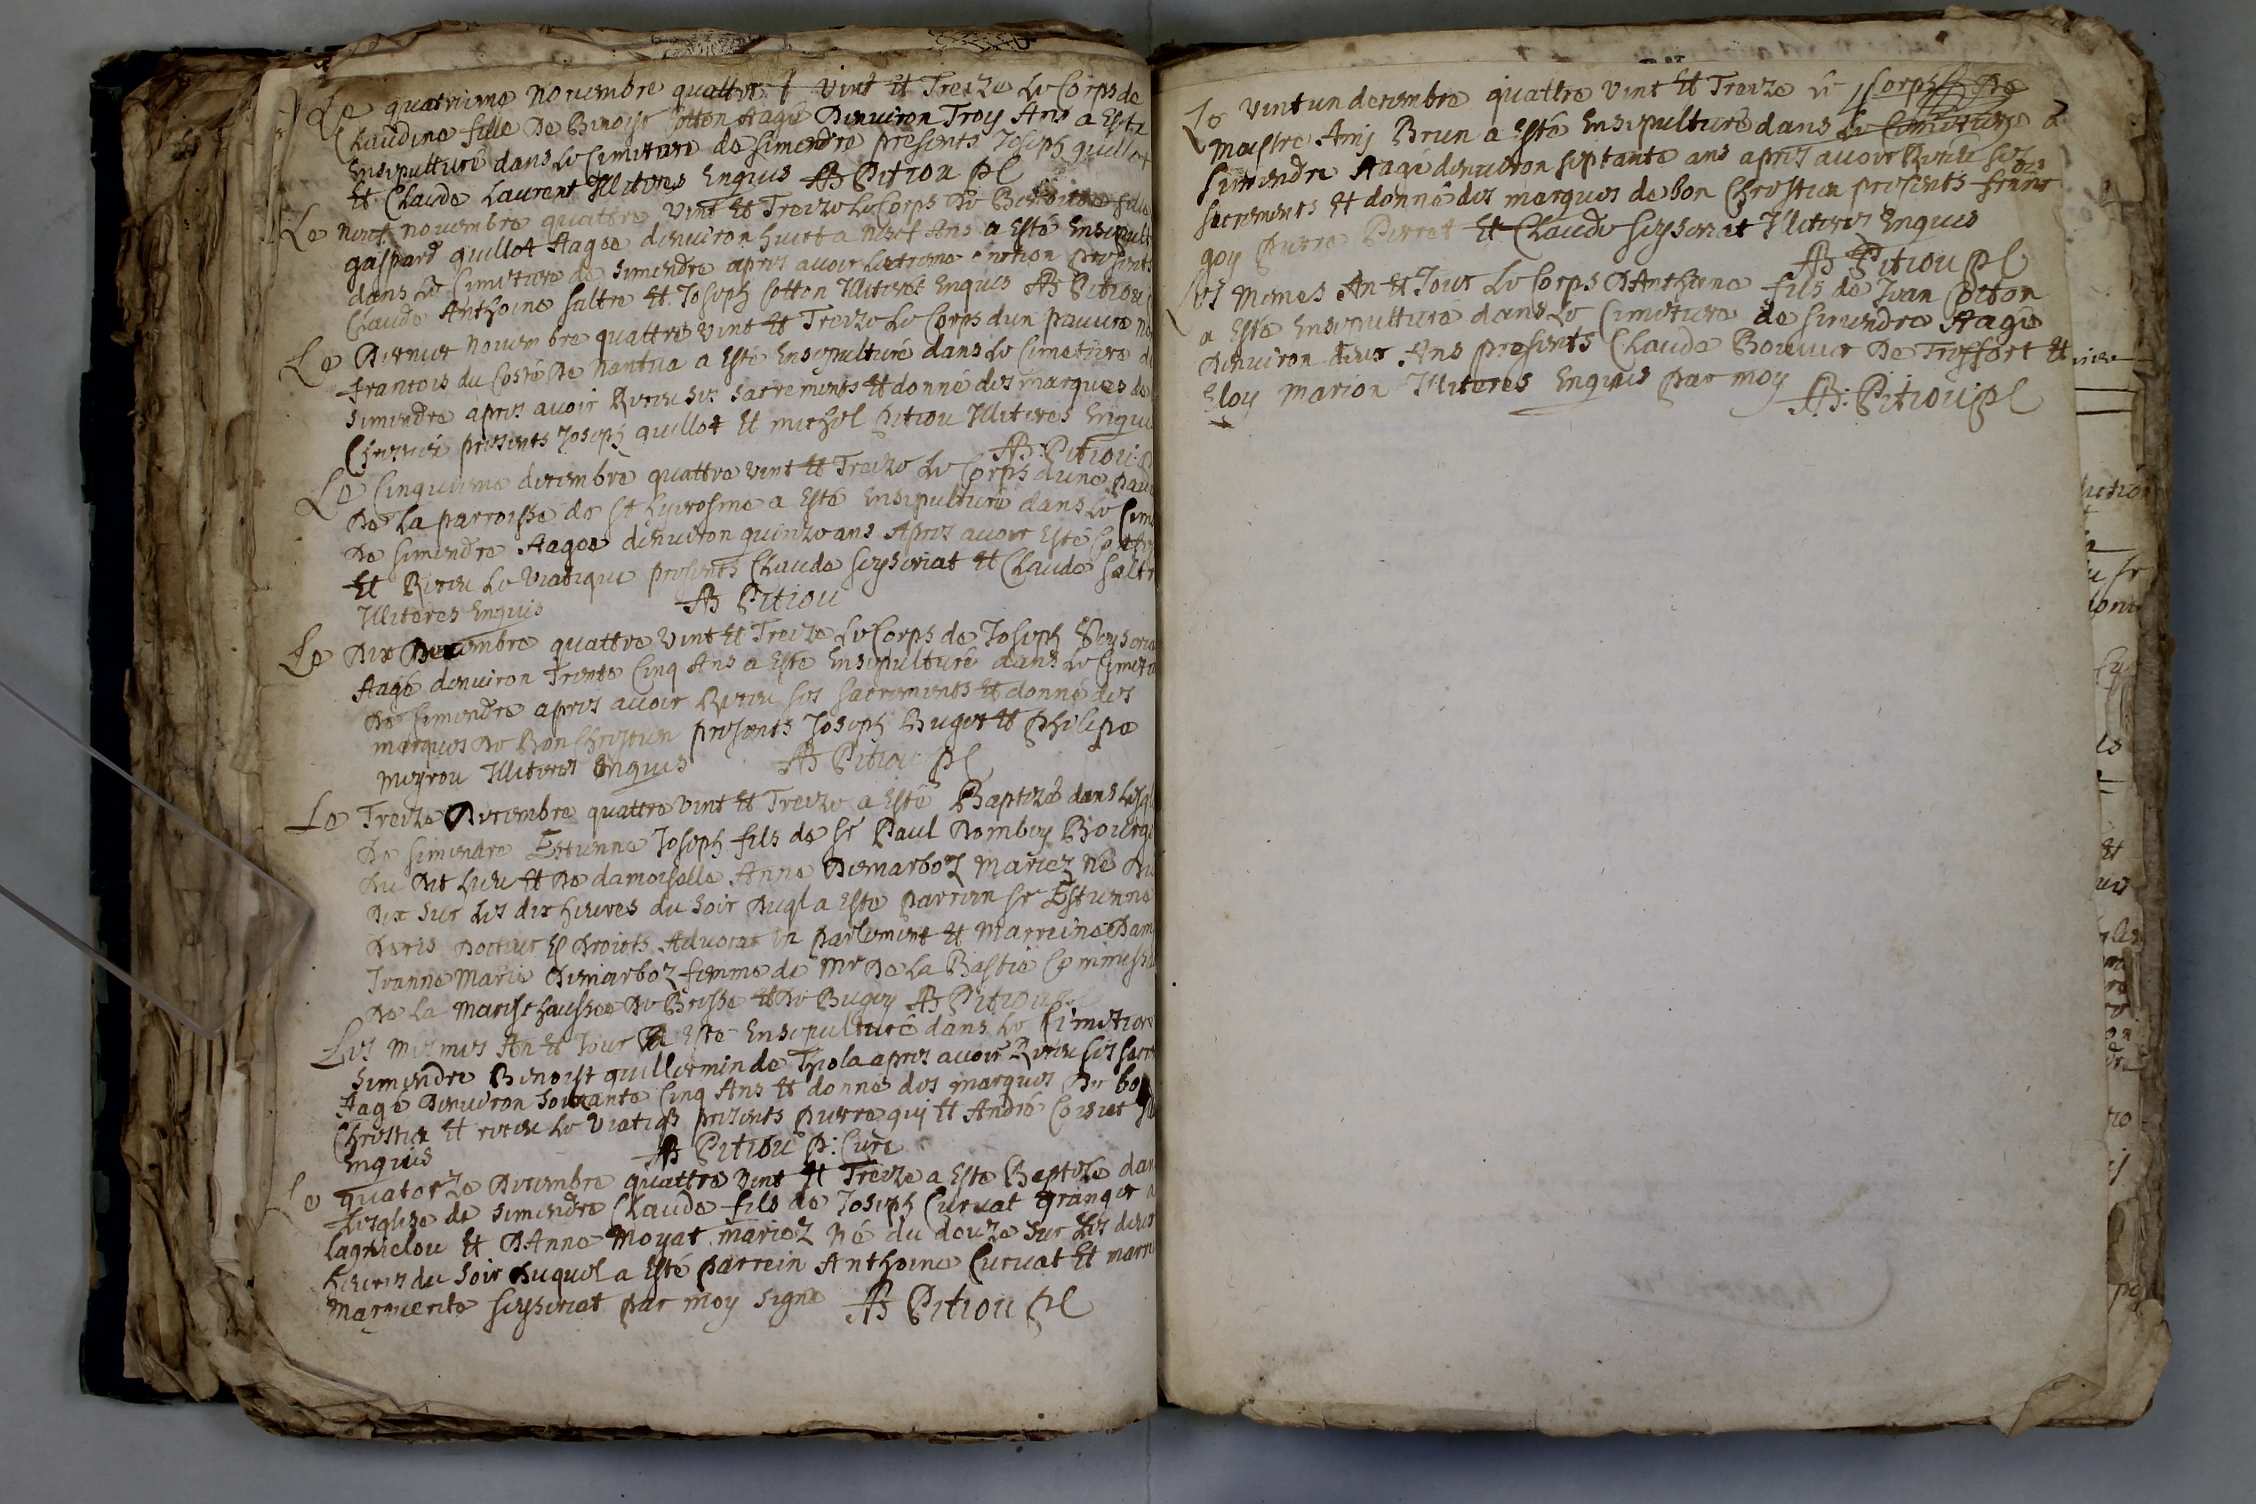 Le quatrieme novembre quattre vint Et Treize Le Corps de
Claudine fille De Benoist Cotton Aagé Denviron Troy Ans a Esté
Ensepulturé dans Le Cimetiere de Simendre presents Joseph quillot
Et Claude Laurent Illiteres Enquis AB Pitiou pC
Le neuf novembre quattre vint Et Treize Le Corps De Benoite fille
gaspard quillot Aagee denviron huict a neuf Ans a Esté Ensepult
dans Le Cimetiere de Simendre apres avoir Lextreme onction presents
Claude Anthoine saltre Et Joseph Cotton Illiteres Enquis AB Pitiou
Le Dernier novembre quattre vint Et Treize Le Corps dun pauvre
francois du Costé De Nantua a Esté Ensepulturé dans Le Cimetiere
Simendre apres avoir Receu Ses Sacrements Et donné des marques de
Chrestien presents Joseph quillot Et michel Pitiou Illiteres Enquis
AB: Pitiou
Le Cinquieme decembre quattre vint Et Treize Le Corps dune pauvre
De La parroisse de St hyerosme a Esté Ensepulturé dans Le Cime
De Simendre Aagee denviron quinze ans Apres avoir Esté
Et Receu Le Viatique presents Claude Seyseriat Et Claude Saltr
Illiteres Enquis AB Pitiou
Le Dix Decembre quattre Vint Et Treize Le Corps de Joseph Seyseria
Aagé denviron Trente Cinq Ans a Esté Ensepulturé dans Le Cimetie
De Simendre apres avoir Receu ses sacrements Et donné des
marques De Bon Chrestien presents Joseph Buget Et Philipe
meyrou Illiteres Enquis AB Pitiou pC
Le Treize Decembre quattre vint Et Treize a Esté Baptizé dans Lesgl
De Simendre Estienne Joseph fils de Sr Paul Dombey Bourge
Du Dit Lieu Et De damoiselle Anne Demarboz Mariez Né Du
Dix Sur Les dix heures du Soir Duql a Esté Parrein Sr Estienne
Docteur Es Droicts Advocat En parlement Et Marreine Dam
Jeanne Marie Demarboz femme de Mr De La Bastie Commiss
De La Mareschaussee De Bresse Et De Bugey AB Pitiou
Les mesmes An Et Jour A Esté Ensepulturé dans Le Cimetiere
Simendre Benoist quillermin de apres avoir Receu ses Sacre
Aagé Denviron Soixante Cinq Ans Et donné des marques De bon
Chrestien Et receu Le Viatiq presents pierre guy Et André
Enquis AB Pitiou P: Curé
Le quatorze Decembre quattre vint Et Treize a Esté Baptizé dan
Lesglise de Simendre Claude fils de Joseph Curvat granger a
Et DAnne Moyat mariez Né du douze Sur Les deux
heures du Soir Duquel a Esté Parrein Anthoine Curvat Et marre
Marguerite Seyseriat par moy Signé AB Pitiou pC
Le vint un decembre quattre vint Et Treize Le Corps De
Maistre Brun a Esté Ensepulturé dans Le Cimetiere a
Simendre Aagé denviron septante ans apres avoir Receu ses
sacrements Et donné des marques de bon Chrestien presents
Pierre Perret Et Claude Seyseriat Illiteres Enquis
AB Pitiou pC
Les Memes An Et Jour Le Corps DAnthoine fils de Jean Cotton
a Esté Ensepulturé dans Le Cimetiere de Simendre Aagé
Denviron deux Ans presents Claude Bouvier De Treffort Et
Eloy Marion Illiteres Enquis par moy
AB: Pitiou: pC